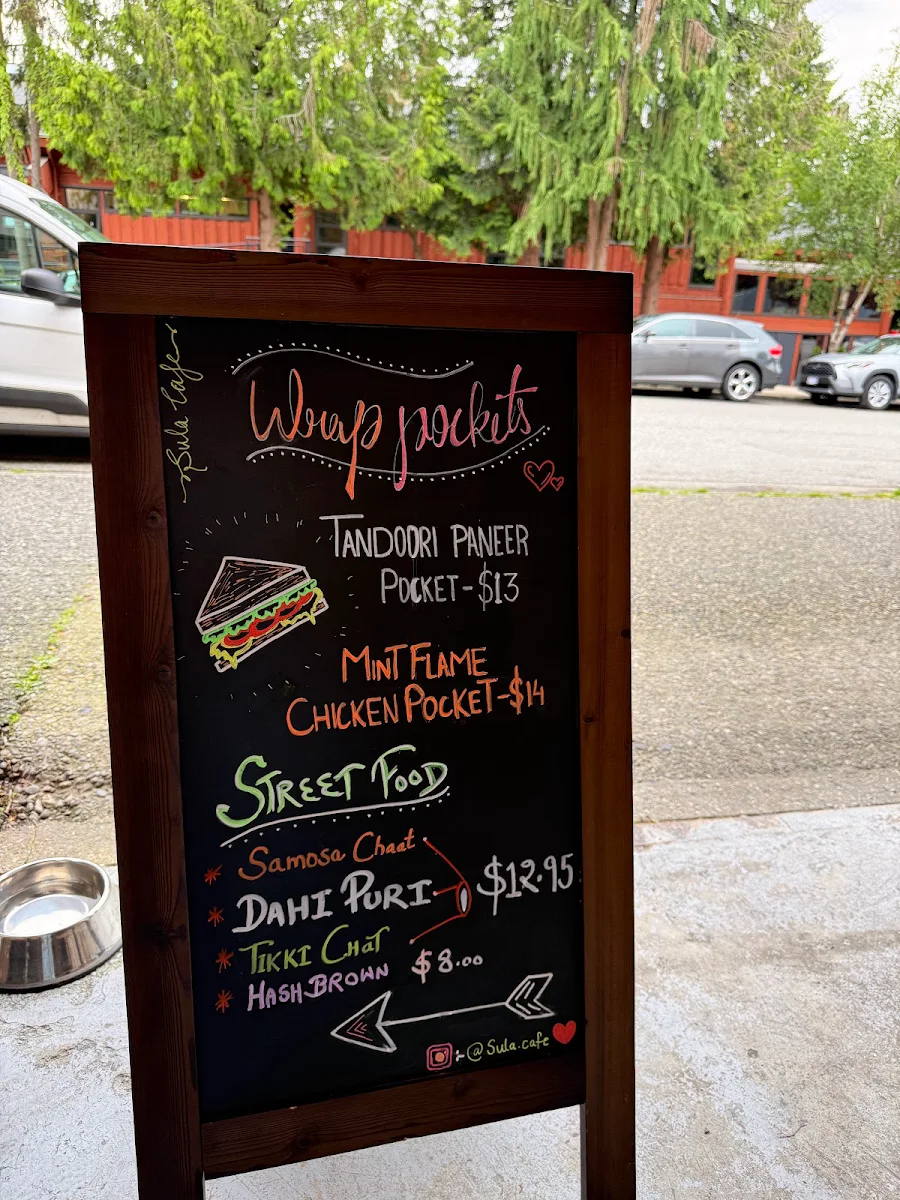 Sula Cafe
Wrap pockets
TANDOORI PANEER
POCKET-$13
MINT FLAME
CHICKEN POCKET-$14
STREET FOOD
* Samosa Chaat
* DAHI PURI $12.95
* TIKKI CHAT
* HASH BROWN $8.00
:- @Sula.cafe